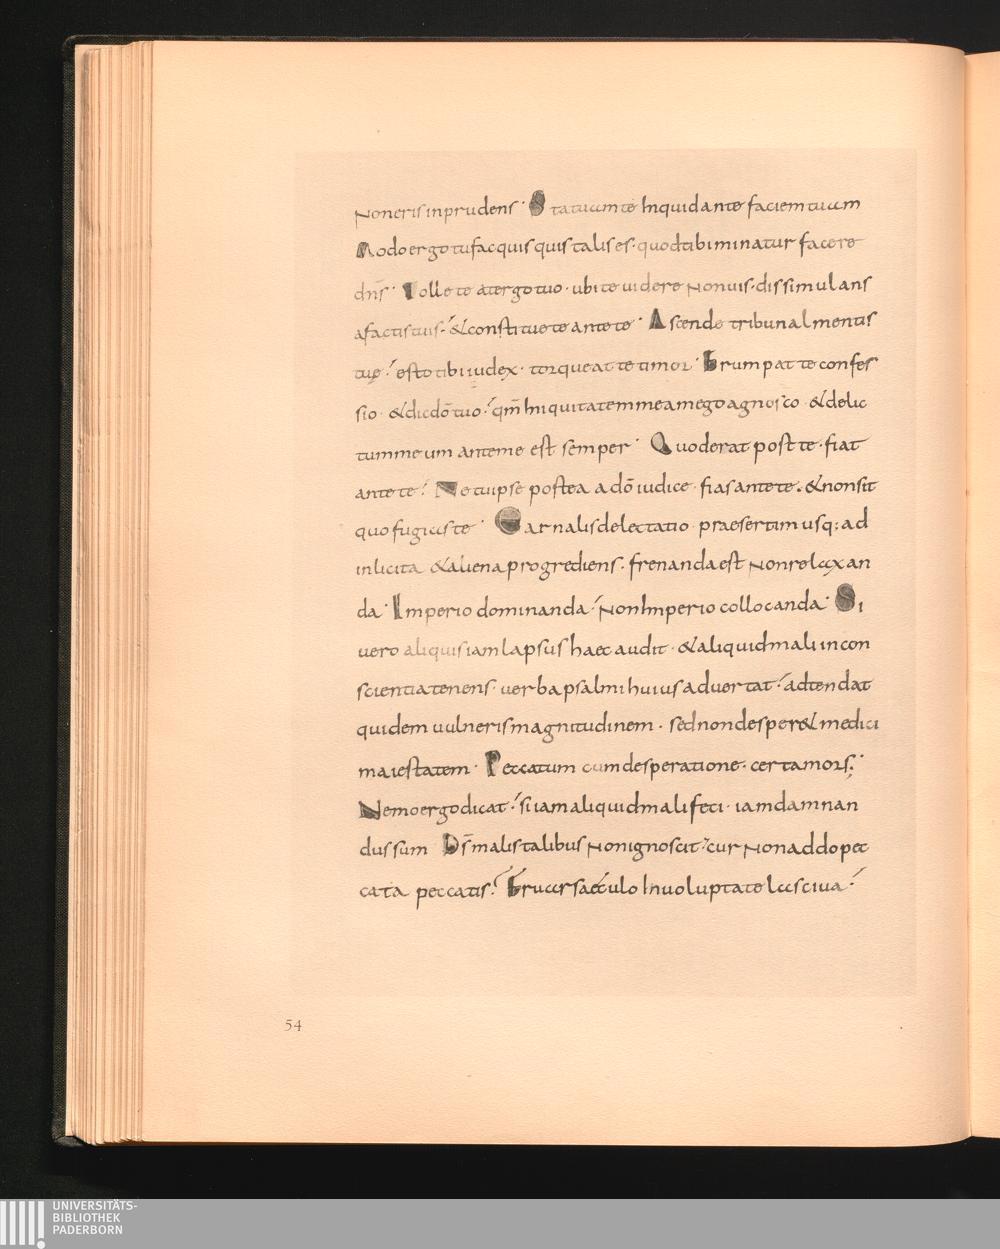 Non eris inprudens · Statuam te Inquid ante faciem tuam
Modo ergo tu fac quis quis talis es · quod tibi minatur facere
dn̄s · Tolle te atergo tuo · ubi te uidere Non uis · dissimulans
afactis tuis · & constitue te ante te · Ascende tribunal mentis
tuę · esto tibi iudex · torqueat te timor · Erumpat te confes
sio · & dic dō tuo · qm̄ Iniquitatem meam ego agnosco · & delic
tum meum ante me est semper · Quod erat post te · fiat
ante te · Ne tu ipse postea a dō iudice · fias ante te · & non sit
quo fugias te · Carnalis delectatio praesertim usq: ad
inlicita & aliena progrediens · frenanda est Non relaxan
da · Imperio dominanda · Non Imperio collocanda · Si
uero aliquis iam lapsus haec audit · & aliquid mali in con
scientia tenens · uerba psalmi huius aduertat · adtendat
quidem uulneris magnitudinem · sed non desper& medici
maiestatem · Peccatum cum desperatione · certa mors ·
Nemo ergo dicat · si iam aliquid mali feci · iam damnan
dus sum Ds̄ malis talibus Non ignoscit · cur Non addo pec
cata peccatis · Fruar saeculo In uoluptate lasciua ·
54
UNIVERSITÄTS-
BIBLIOTHEK
PADERBORN